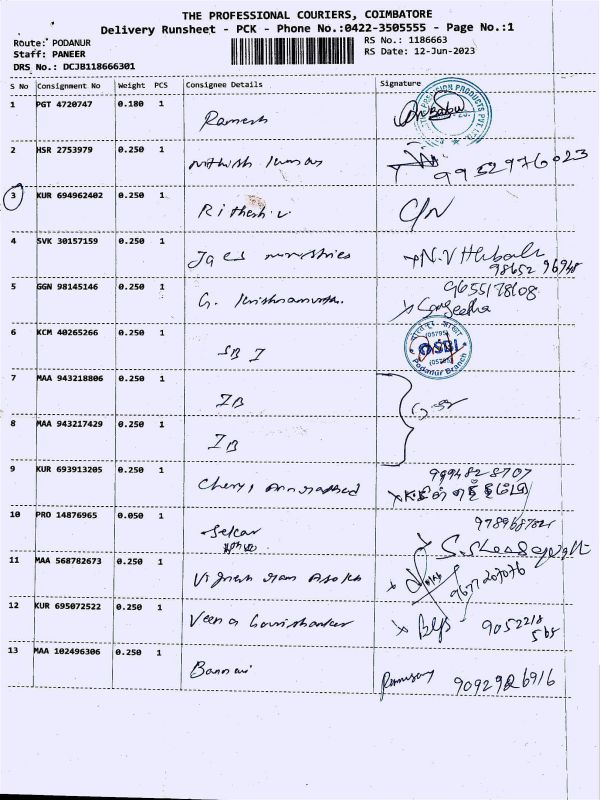 THE PROFESSIONAL COURIERS, COIMBATORE
Delivery Runsheet - PCK - Phone No.:0422-3505555 - Page No.:1
Route: PODANUR
Staff: PANEER
DRS No.: DCJB118666301
RS No.: 1186663
RS Date: 12-Jun-2023
S No Consignment No Weight PCS Consignee Details Signature
1 PGT 4720747 0.180 1 Ramesh
2 HSR 2753979 0.250 1 Nithish Kumar 9952976023
3 KUR 694962402 0.250 1 Rithesh.v C/N
4 SVK 30157159 0.250 1 ministries N.V
98652 96948
5 GGN 98145146 0.250 1 G. Krishnamurthi. 9655178108
Sangeetha
6 KCM 40265266 0.250 1 SBI SBI
Podanur Branch
7 MAA 943218806 0.250 1 IB
8 MAA 943217429 0.250 1 IB
9 KUR 693913205 0.250 1 9994828707
10 PRO 14876965 0.050 1 Sekar
11 MAA 568782673 0.250 1 Vignesh Ram Asokh 9677207076
12 KUR 695072522 0.250 1 Veena Gowrishankar 9052218
13 MAA 102496306 0.250 1 Bannari 9092926916